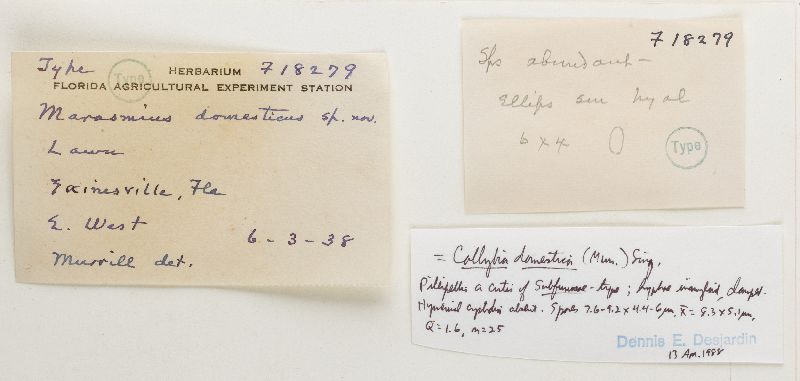 Type Type HERBARIUM F18279
FLORIDA AGRICULTURAL EXPERIMENT STATION
Marasmius domesticus sp. nov.
Lawn
Gainesville, Fla
E. West
6-3-38
Murrill det.
F18279
Sps abundant—
ellips sm hyal
6 x 4
Type
= Collybia domestica (Murr.) Sing.
Pileipellis a cutis of Subfumosae-type; hyphae inamyloid,
Hymenial cystidia absent. Spores 7.6-9.2 x 4.4-6 µm, x̄ = 8.3 x 5.1 µm,
Q = 1.6, n = 25
Dennis E. Desjardin
13 1988